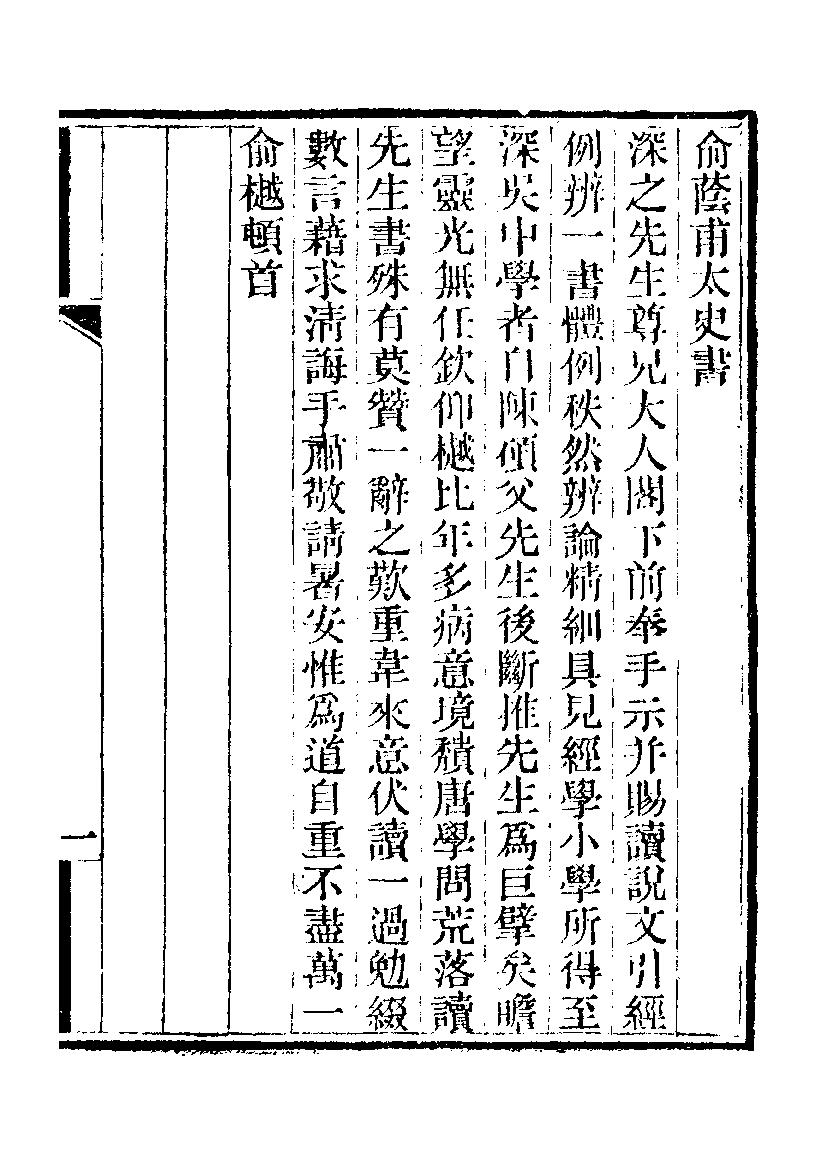 俞蔭甫太史書
深之先生尊兄大人閣下前奉手示并賜讀說文引經
例辨一書體例秩然辨論精細具見經學小學所得至
深吳中學者自陳碩父先生後斷推先生爲巨擘矣瞻
望靈光無任欽仰樾比年多病意境穨唐學問荒落讀
先生書殊有莫贊一辭之歎重韋來意伏讀一過勉綴
數言藉求淸誨手肅敬請暑安惟爲道自重不盡萬一
俞樾頓首
一